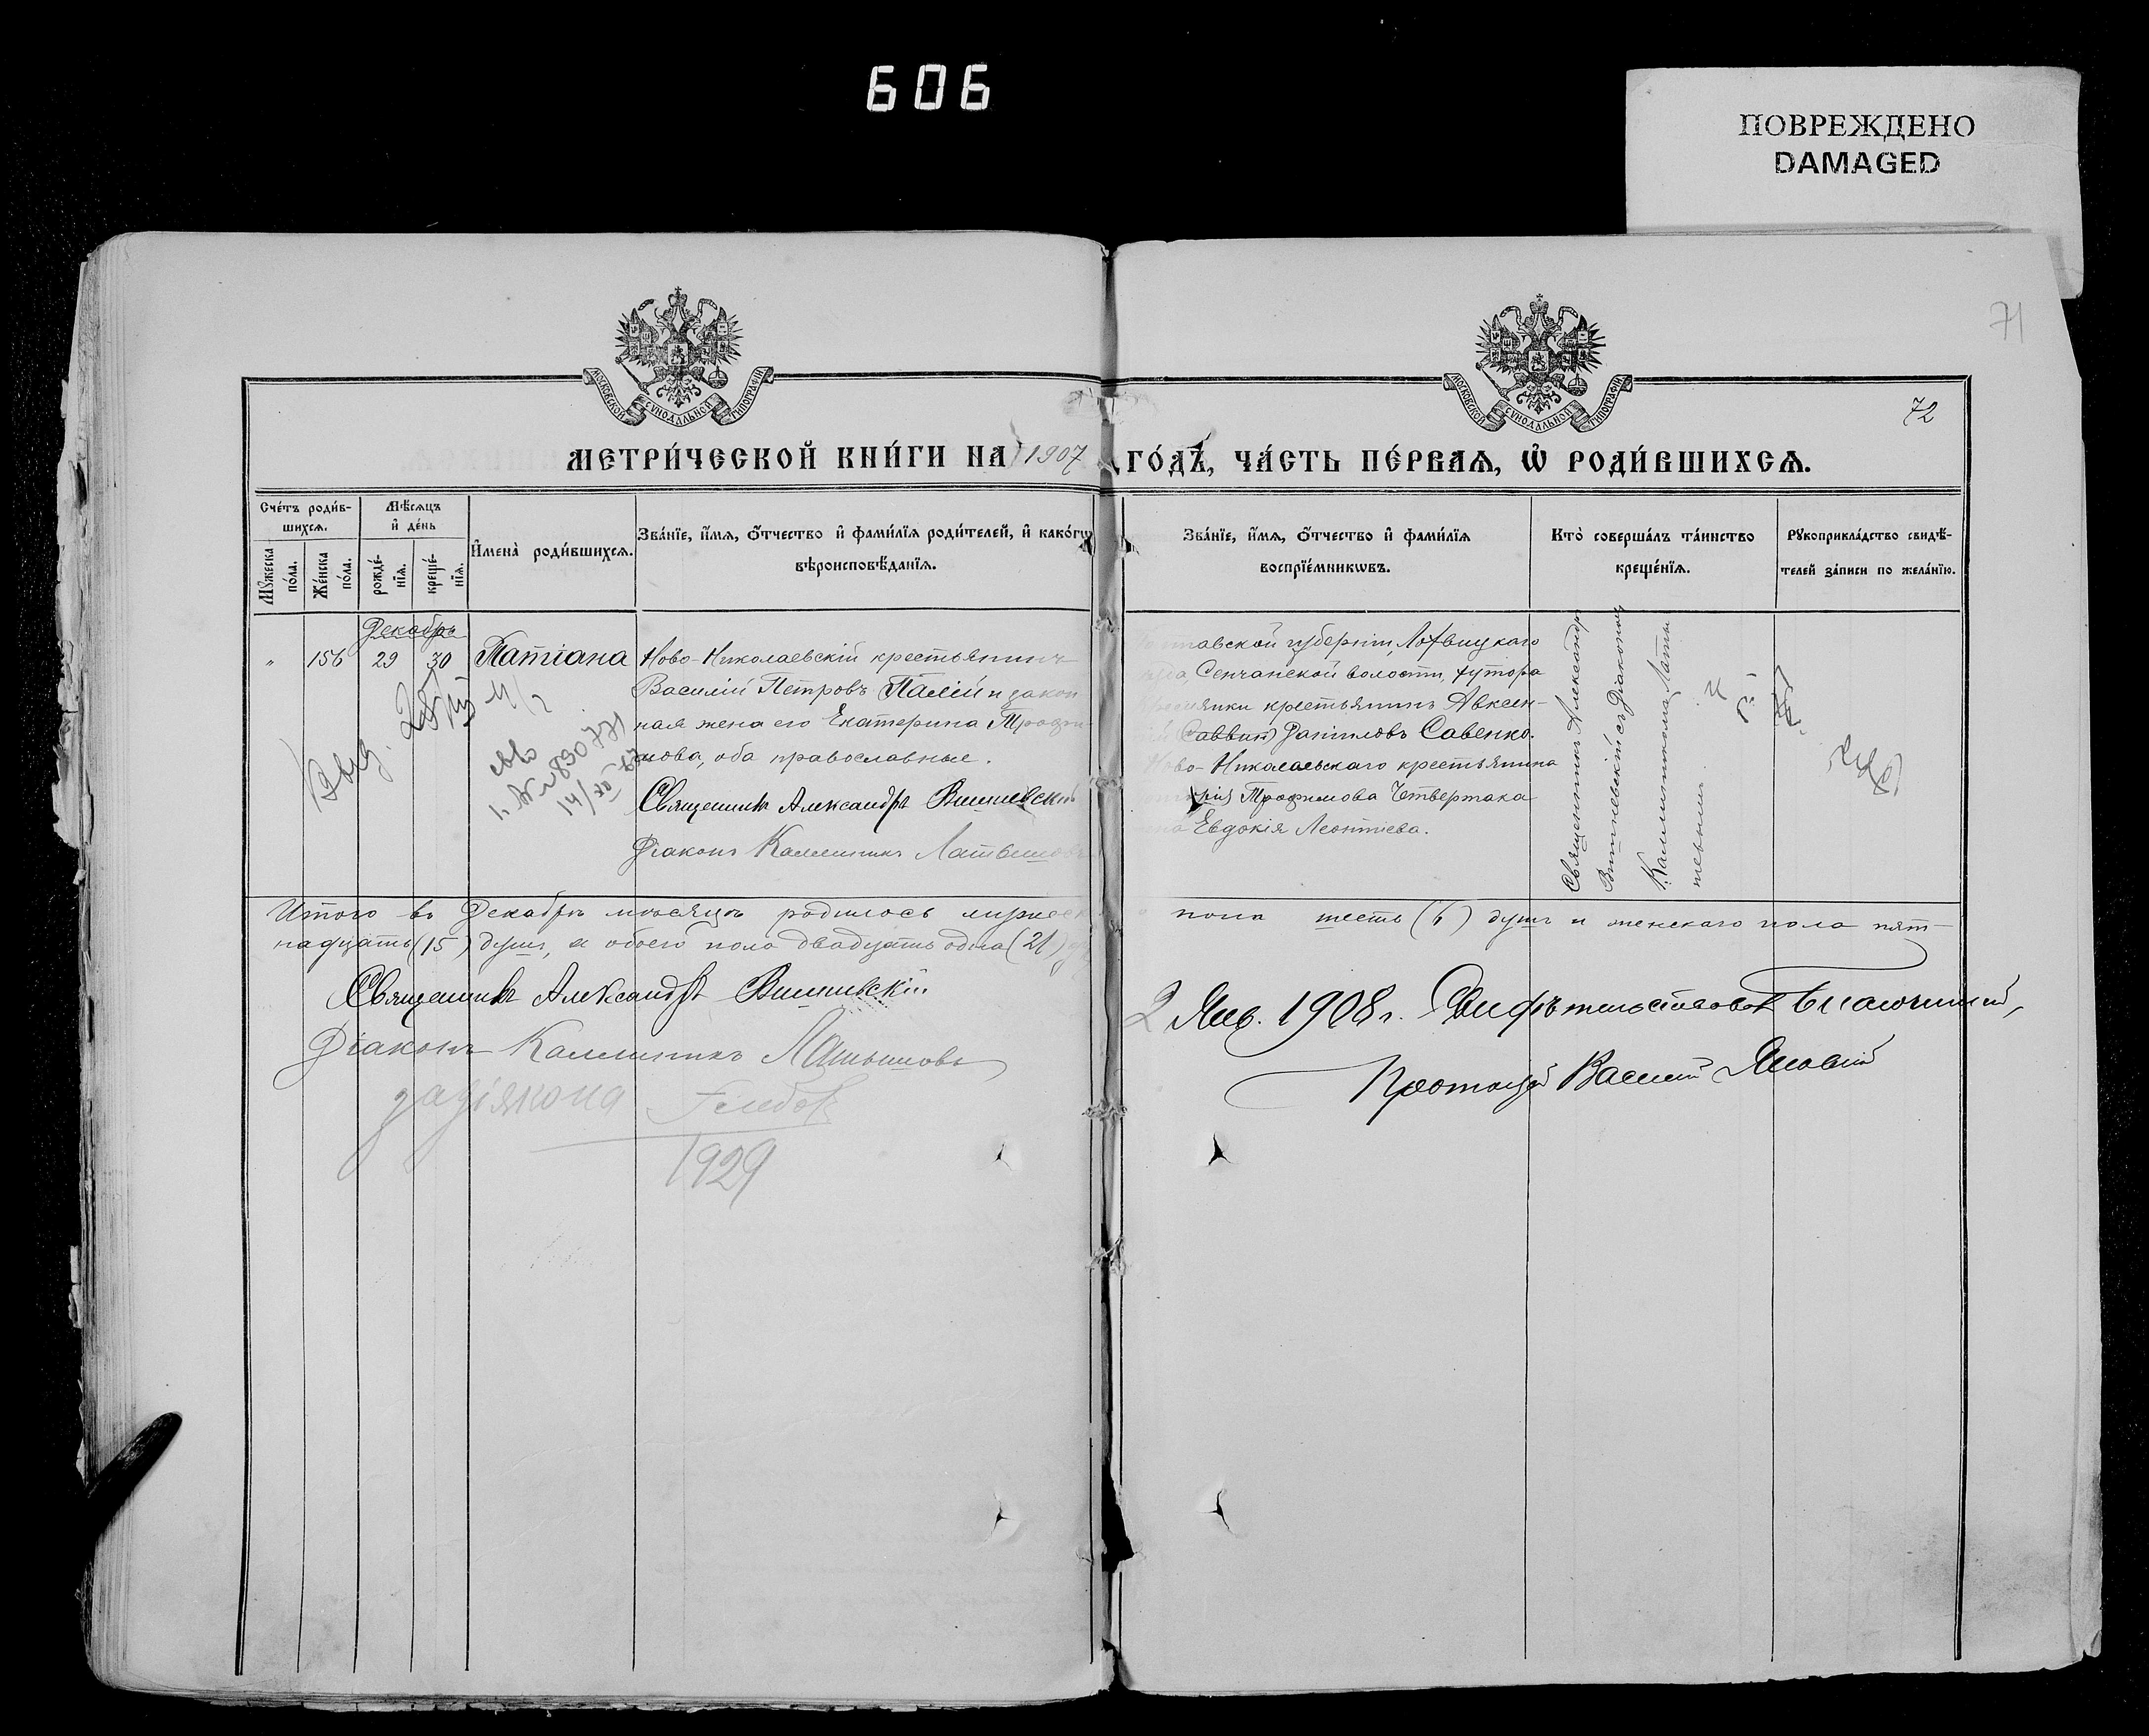 606
ПОВРЕЖДЕНО
DAMAGED
71
72
МОСКОВСКОЙ СУНОДАЛЬНОЙ ТИПОГРАФІИ
МОСКОВСКОЙ СУНОДАЛЬНОЙ ТИПОГРАФІИ
МЕТРИ́ЧЕСКОЙ КНИ́ГИ НА 1907 ГО́ДЪ, ЧА́СТЬ ПЕ́РВАѦ, Ѡ РОДИ́ВШИХСѦ.
Сче́тъ роди́в-
шихсѧ.
Мꙋжеска по́ла.
Же́нска по́ла.
Мѣ́сѧцъ
и҆ де́нь
рожде́-
нїѧ.
креще́-
нїѧ.
И҆мена̀ роди́вшихсѧ.
Зва́нїе, и҆́мѧ, ѻ҆́тчество и҆ фами́лїѧ роди́телей, и҆ како́гѡ
вѣроисповѣ́данїѧ.
Зва́нїе, и҆́мѧ, ѻ҆́тчество и҆ фами́лїѧ
воспрїе́мникѡвъ.
Кто̀ соверша́лъ та́инство
креще́нїѧ.
Рꙋкоприкла́дство свидѣ́-
телей за́писи по жела́нїю.
Декабрь
" 156 29 30 Татіана
Ново-Николаевскій крестьянинъ
Василій Петровъ Палій и закон
ная жена его Екатерина Трофи-
мова, оба православные.
Священникъ Александръ Вишневскій
Діаконъ Каллиникъ Латышовъ
тавской губерніи, Лохвицкаго
Сенчанской волости, хутора
крестьянинъ Авксен-
Саввинъ Даниловъ Савенко.
Ново-Николаевскаго крестьянина
Трофимова Четвертака
Евдокія Леонтіева.
Священникъ Александръ
Вишневскій съ Діакономъ
Каллиникомъ Латы-
шевымъ.
Выд.
1/2
св-во
14/XII
Итого въ Декабрѣ мѣсяцѣ родилось мужеск
пола шесть (6) душъ и женскаго пола пят-
надцать (15) душъ, а обоего пола двадцать одна (21)
Священникъ Александръ Вишневскій
Діаконъ Каллиникъ Латышовъ
1929
2 Янв. 1908 г. Свидѣтельствовалъ Благочинный,
Протоіерей Василій Яновскій